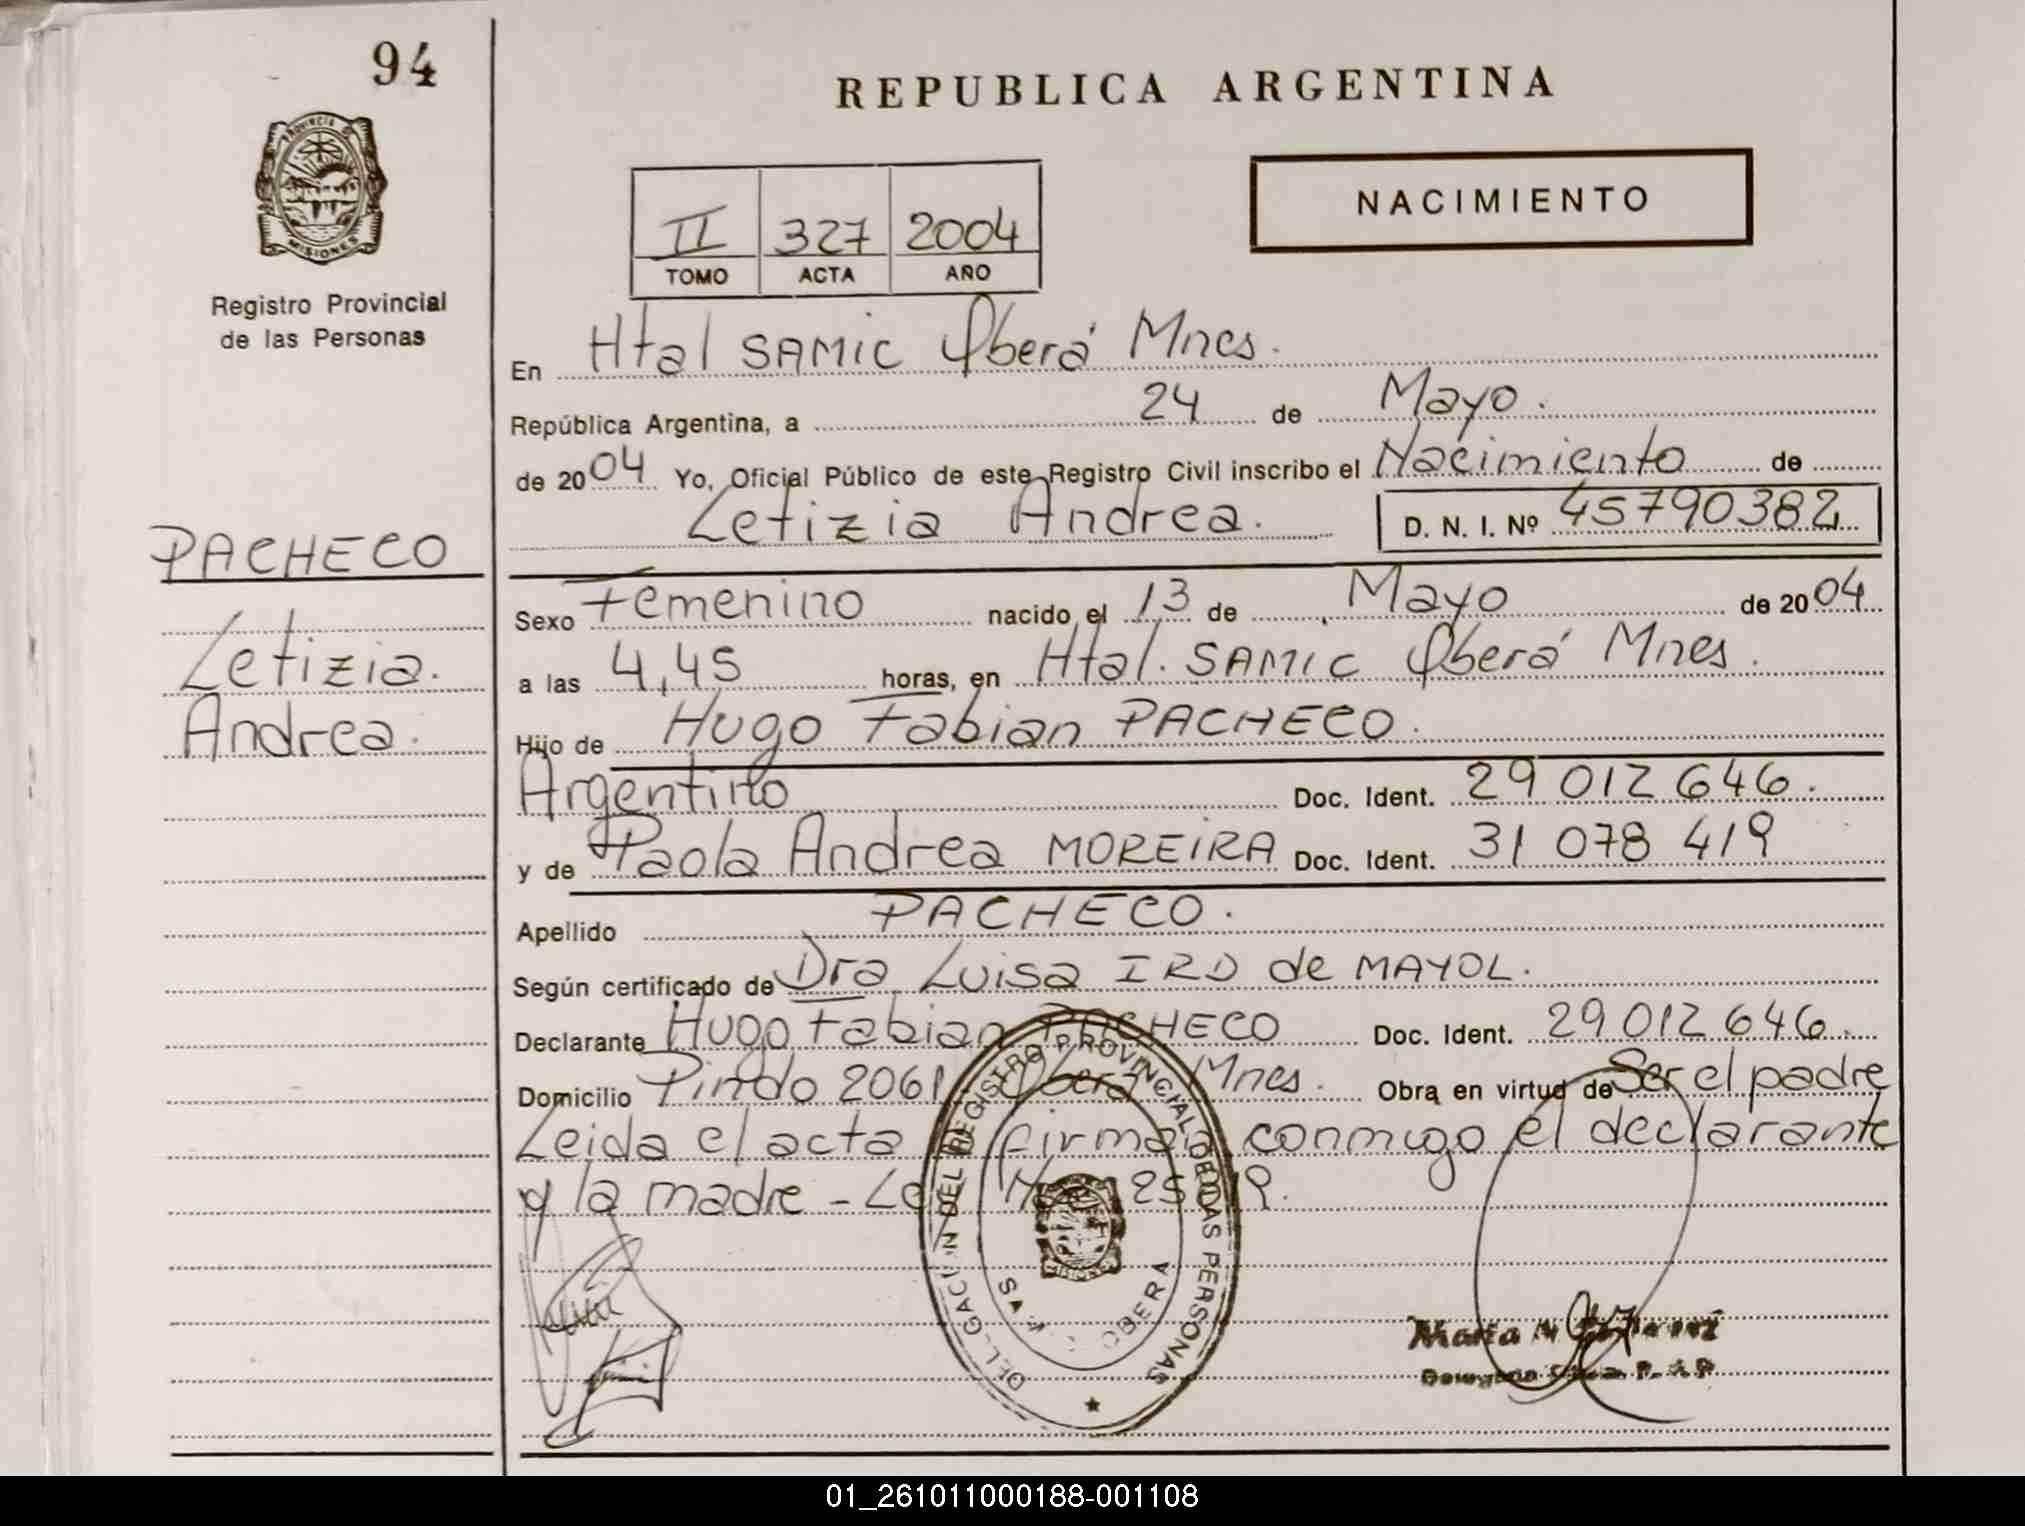 94
REPUBLICA ARGENTINA
PROVINCIA DE
MISIONES
Registro Provincial
de las Personas
NACIMIENTO
II 327 2004
TOMO ACTA AÑO
En Htal SAMIC Oberá Mnes.
República Argentina, a 24 de Mayo.
de 2004 Yo, Oficial Público de este Registro Civil inscribo el Nacimiento de
Letizia Andrea. D. N. I. Nº 45790382
PACHECO
Letizia.
Andrea.
Sexo Femenino nacido el 13 de Mayo de 2004
a las 4,45 horas, en Htal. SAMIC Oberá Mnes.
Hijo de Hugo Fabian PACHECO.
Argentino Doc. Ident. 29 012 646.
y de Paola Andrea MOREIRA Doc. Ident. 31 078 419
Apellido PACHECO.
Según certificado de Dra Luisa IRD de MAYOL.
Declarante Hugo Fabian PACHECO Doc. Ident. 29 012 646.
Domicilio Pindo 2061 Oberá Mnes. Obra en virtud de Ser el padre
Leida el acta firman conmigo el declarante
y la madre -
DELEGACION DEL REGISTRO PROVINCIAL DE LAS PERSONAS
OBERA
MISIONES
Maria
01_261011000188-001108